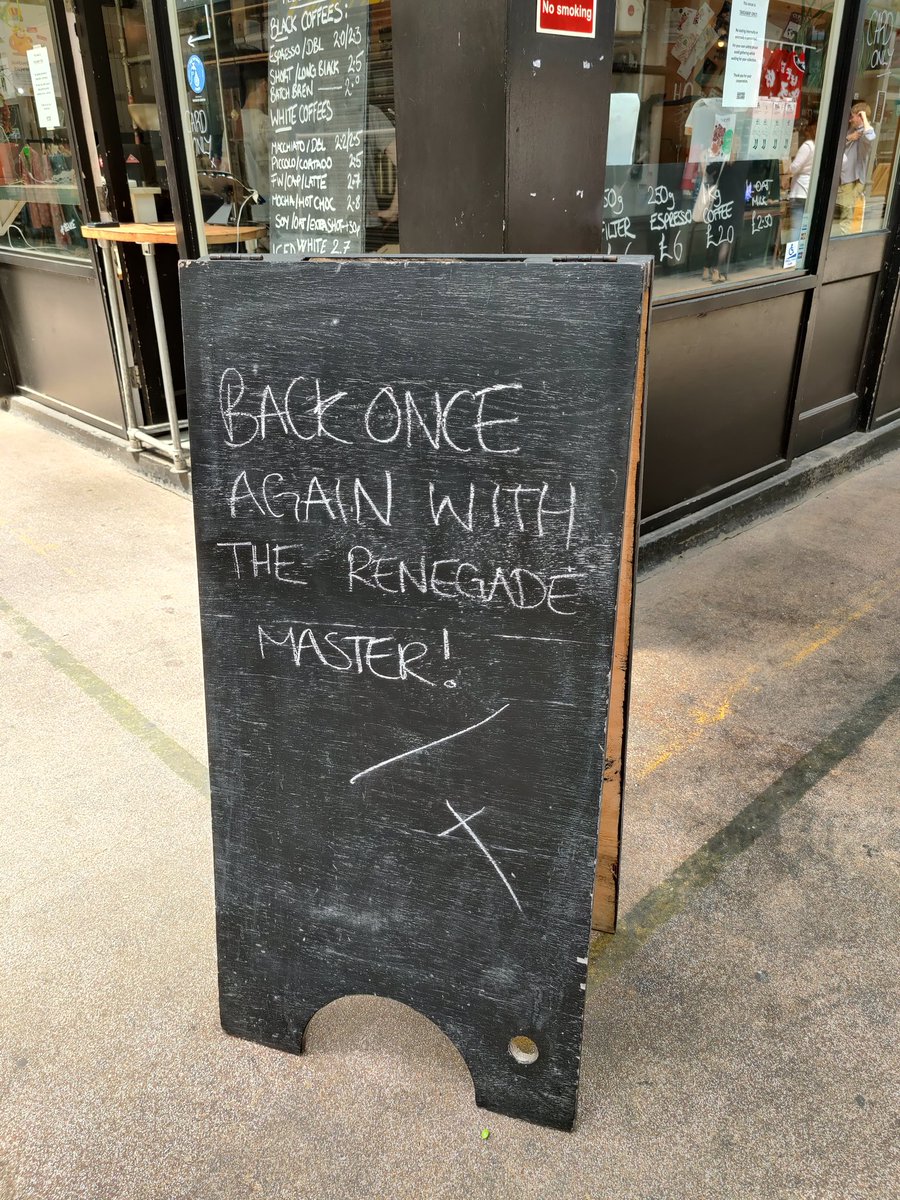 BLACK COFFEES!
ESPRESSO/DBL 2.0/2.3
SHORT/LONG BLACK 2.5
BATCH BREW — 2.0
WHITE COFFEES
MACCHIATO/DBL 2.2/2.5
PICCOLO/CORTADO 2.5
FW/CAP/LATTE 2.7
MOCHA/HOT CHOC 2.8
SOY/OAT/EXTRA SHOT +30p
ICED WHITE 2.7
No smoking
CARD
ONLY
250g
ESPRESSO
£6
COFFEE
£20
OAT
MILK
£2.50
BACK ONCE
AGAIN WITH
THE RENEGADE
MASTER!